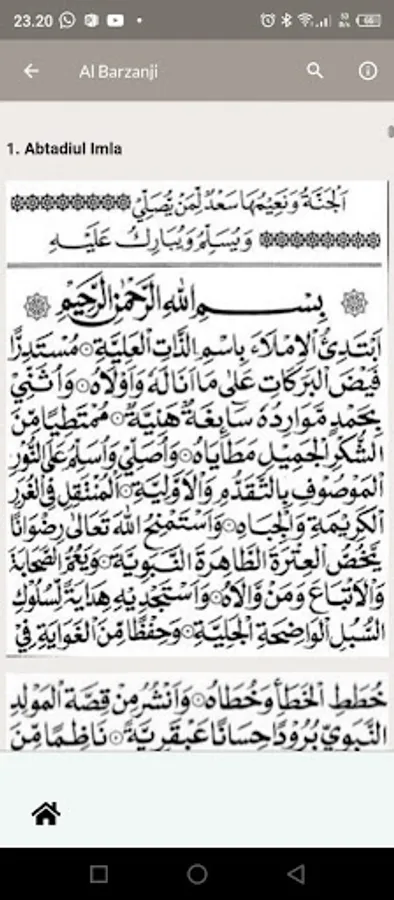 23.20
66
Al Barzanji
1. Abtadiul Imla
اَلْجَنَّةُ وَنَعِيْمُهَا سَعْدٌ لِمَنْ يُصَلِّيْ
وَيُسَلِّمُ وَيُبَارِكُ عَلَيْهِ
بِسْمِ اللهِ الرَّحْمٰنِ الرَّحِيْمِ
اَبْتَدِئُ الْاِمْلَاءَ بِاسْمِ الذَّاتِ الْعَلِيَّةِ۞مُسْتَدِرًّا
فَيْضَ الْبَرَكَاتِ عَلٰى مَا اَنَالَهُ وَاَوْلَاهُ۞وَاُثَنِّيْ
بِحَمْدٍ مَّوَارِدُهُ سَآئِغَةٌ هَنِيَّةٌ۞مُمْتَطِيًا مِّنَ
الشُّكْرِ الْجَمِيْلِ مَطَايَاهُ۞وَاُصَلِّيْ وَاُسَلِّمُ عَلَى النُّوْرِ
الْمَوْصُوْفِ بِالتَّقَدُّمِ وَالْاَوَّلِيَّةِ۞اَلْمُنْتَقِلِ فِى الْغُرَرِ
الْكَرِيْمَةِ وَالْجِبَاهِ۞وَاَسْتَمْنِحُ اللهَ تَعَالٰى رِضْوَانًا
يَّخُصُّ الْعِتْرَةَ الطَّاهِرَةَ النَّبَوِيَّةَ۞وَيَعُمُّ الصَّحَابَةَ
وَالْاَتْبَاعَ وَمَنْ وَّالَاهُ۞وَاَسْتَجْدِيْهِ هِدَايَةً لِّسُلُوْكِ
السُّبُلِ الْوَاضِحَةِ الْجَلِيَّةِ۞وَحِفْظًا مِّنَ الْغَوَايَةِ فِيْ
خُطَطِ الْخَطَأِ وَخُطَاهُ۞وَاَنْشُرُ مِنْ قِصَّةِ الْمَوْلِدِ
النَّبَوِيِّ بُرُوْدًا حِسَانًا عَبْقَرِيَّةً۞نَاظِمًا مِّنَ